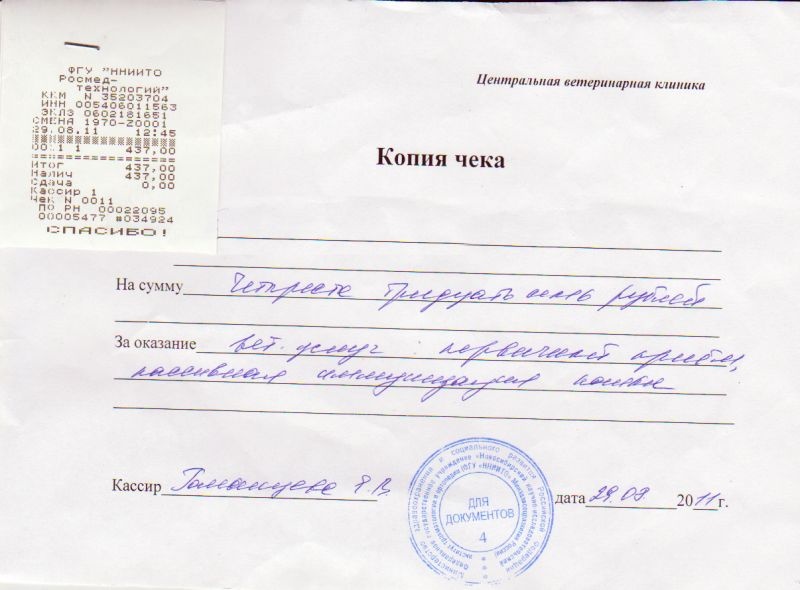 ФГУ "ННИИТО
Росмед-
технологий"
ККМ N 35203704
ИНН 005406011563
ЭКЛЗ 0602181651
СМЕНА 1970-Z0001
29.08.11 12:45
00:1 1 437,00
Итог 437,00
Налич 437,00
Сдача 0,00
Кассир 1
Чек N 0011
ПО РН 00022095
00005477 #034924
СПАСИБО!
Центральная ветеринарная клиника
Копия чека
На сумму Четыреста тридцать семь рублей
За оказание вет. услуг первичный приём,
пассивная иммунизация кошки
Кассир
дата 29.09 2011 г.
ДЛЯ
ДОКУМЕНТОВ
4